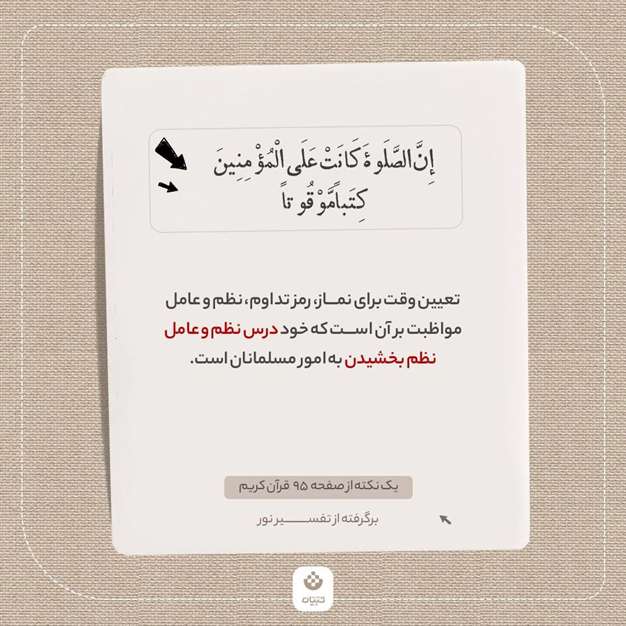 إِنَّ الصَّلَوةَ كَانَتْ عَلَى الْمُؤْمِنِينَ
كِتَباً مَّوْقُوتاً
تعیین وقت برای نمـــاز، رمز تداوم، نظم و عامل
مواظبت بر آن اســـت که خود درس نظم و عامل
نظم بخشیدن به امور مسلمانان است.
یک نکته از صفحه ۹۵ قرآن کریم
برگرفته از تفســـــــیر نور